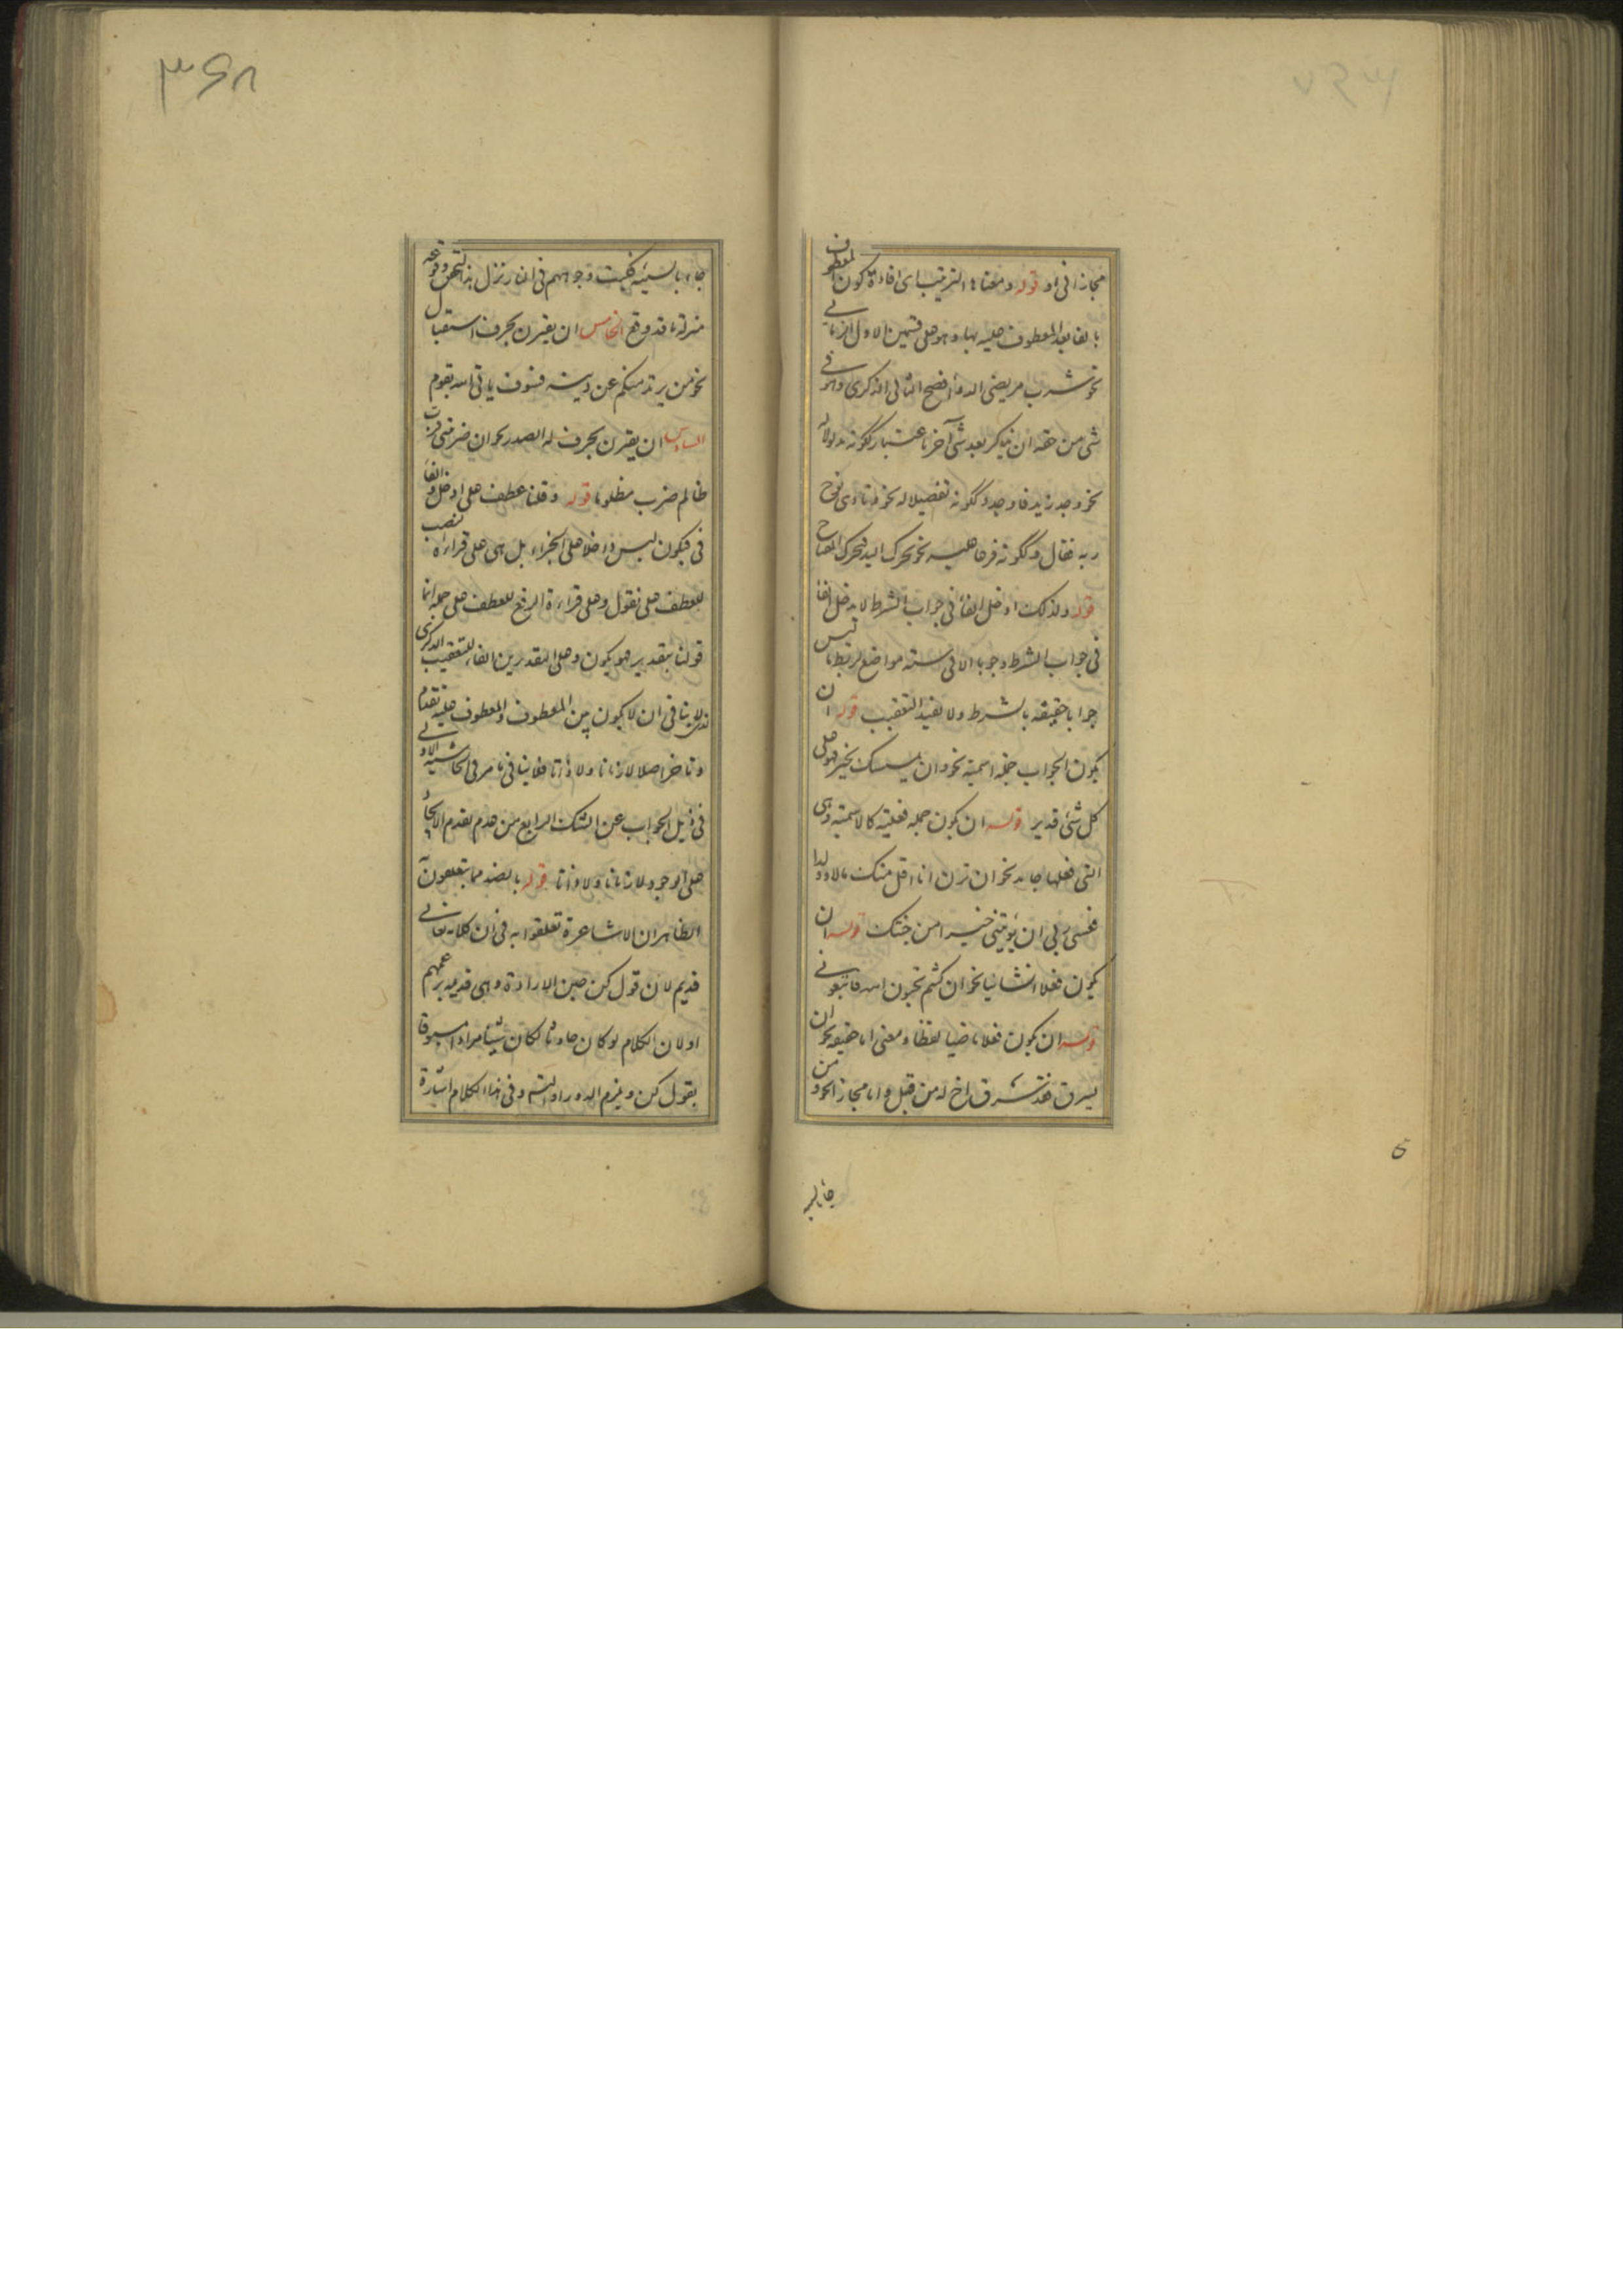 مجازا فی او قوله و معناها الترتیب ای افادة کون المعطوف
بالفا بعد المعطوف علیه بها و هو علی قسمین الاول الزمانی
نحو شرب مریضی الدوأ فصح الثانی الذکری و هو فی
شی من حقه ان یذکر بعد شی آخر باعتبار لکونه مدلولا له
نحو وجد زید فاوجد و لکونه تفصیلا له نحو و نادی نوح
ربه فقال و لکونه فرعا علیه نحو تحرک الید فتحرک المفتاح
قوله ولذلک ادخل الفأ فی جواب الشرط لا یدخل الفأ
فی جواب الشرط وجوبا الا فی سته مواضع لربط ما لیس
جوابا حقیقه بالشرط ولا تفید التعقیب قوله ان
یکون الجواب جمله اسمیه نحو وان یمسسک بخیر فهو علی
کل شئ قدیر قوله ان یکون جمله فعلیه کالاسمیه وهی
التی فعلها جامد نحو ان ترن انا اقل منک مالا وولدا
فعسی ربی ان یؤتینی خیرا من جنتک قوله ان
یکون فعلا انشائیا نحو ان کنتم تحبون الله فاتبعونی
قوله ان یکون فعلا ماضیا لفظا و معنی اما حقیقه نحو ان
یسرق فقد سرق اخ له من قبل واما مجازا نحو و من
جأ بالسیئه
۳۶۸
جاء بالسیئه فکبت وجوههم فی النار نزل هذا لتحقق وقوعه
منزله ما قد وقع الخامس ان یقترن بحرف استقبال
نحو من یرتد منکم عن دینه فسوف یاتی الله بقوم
السادس ان یقترن بحرف له الصدر نحو ان ضربتنی فرب
ظالم ضرب مظلوما قوله و قلنا عطف علی ادخل و الفأ
فی فیکون لیس داخلا علی الجزاء بل هی علی قراءة النصب
للعطف علی نقول و علی قراءة الرفع للعطف علی جمله انما
قولنا بتقدیر هو یکون و علی التقدیرین الفاء للتعقیب الذکری
فلا ینافی ان لا یکون بین المعطوف و المعطوف علیه تقدم
و تاخر اصلا لا زمانا و لا ذاتا فلا ینافی ما مر فی الحاشیه الاولی
فی ذیل الجواب عن الشک الرابع من عدم تقدم الایجاد
علی الوجود لا زمانا و لا ذاتا قوله بالضد مما یتعلقون
الظاهر ان الاشاعرة تعلقوا به فی ان کلامه تعالی
قدیم لان قول کن عین الارادة وهی قدیمه بزعمهم
او لان الکلام لو کان حادثا لکان شیئا مرادا مسبوقا
بقول کن و یلزم الدور او التسـ و فی هذا الکلام اشارة